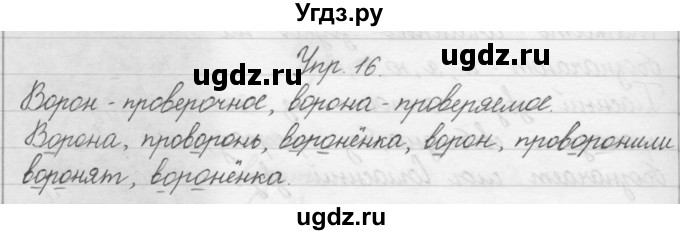 Угдз.ру
Упр. 16.
ugdz.ru ugdz.ru
Ворон - проверочное, ворона - проверяемое.
Ворона, проворонь, воронёнка, ворон, проворонили
воронят, воронёнка.
ugdz.ru ugdz.ru
ugdz.ru